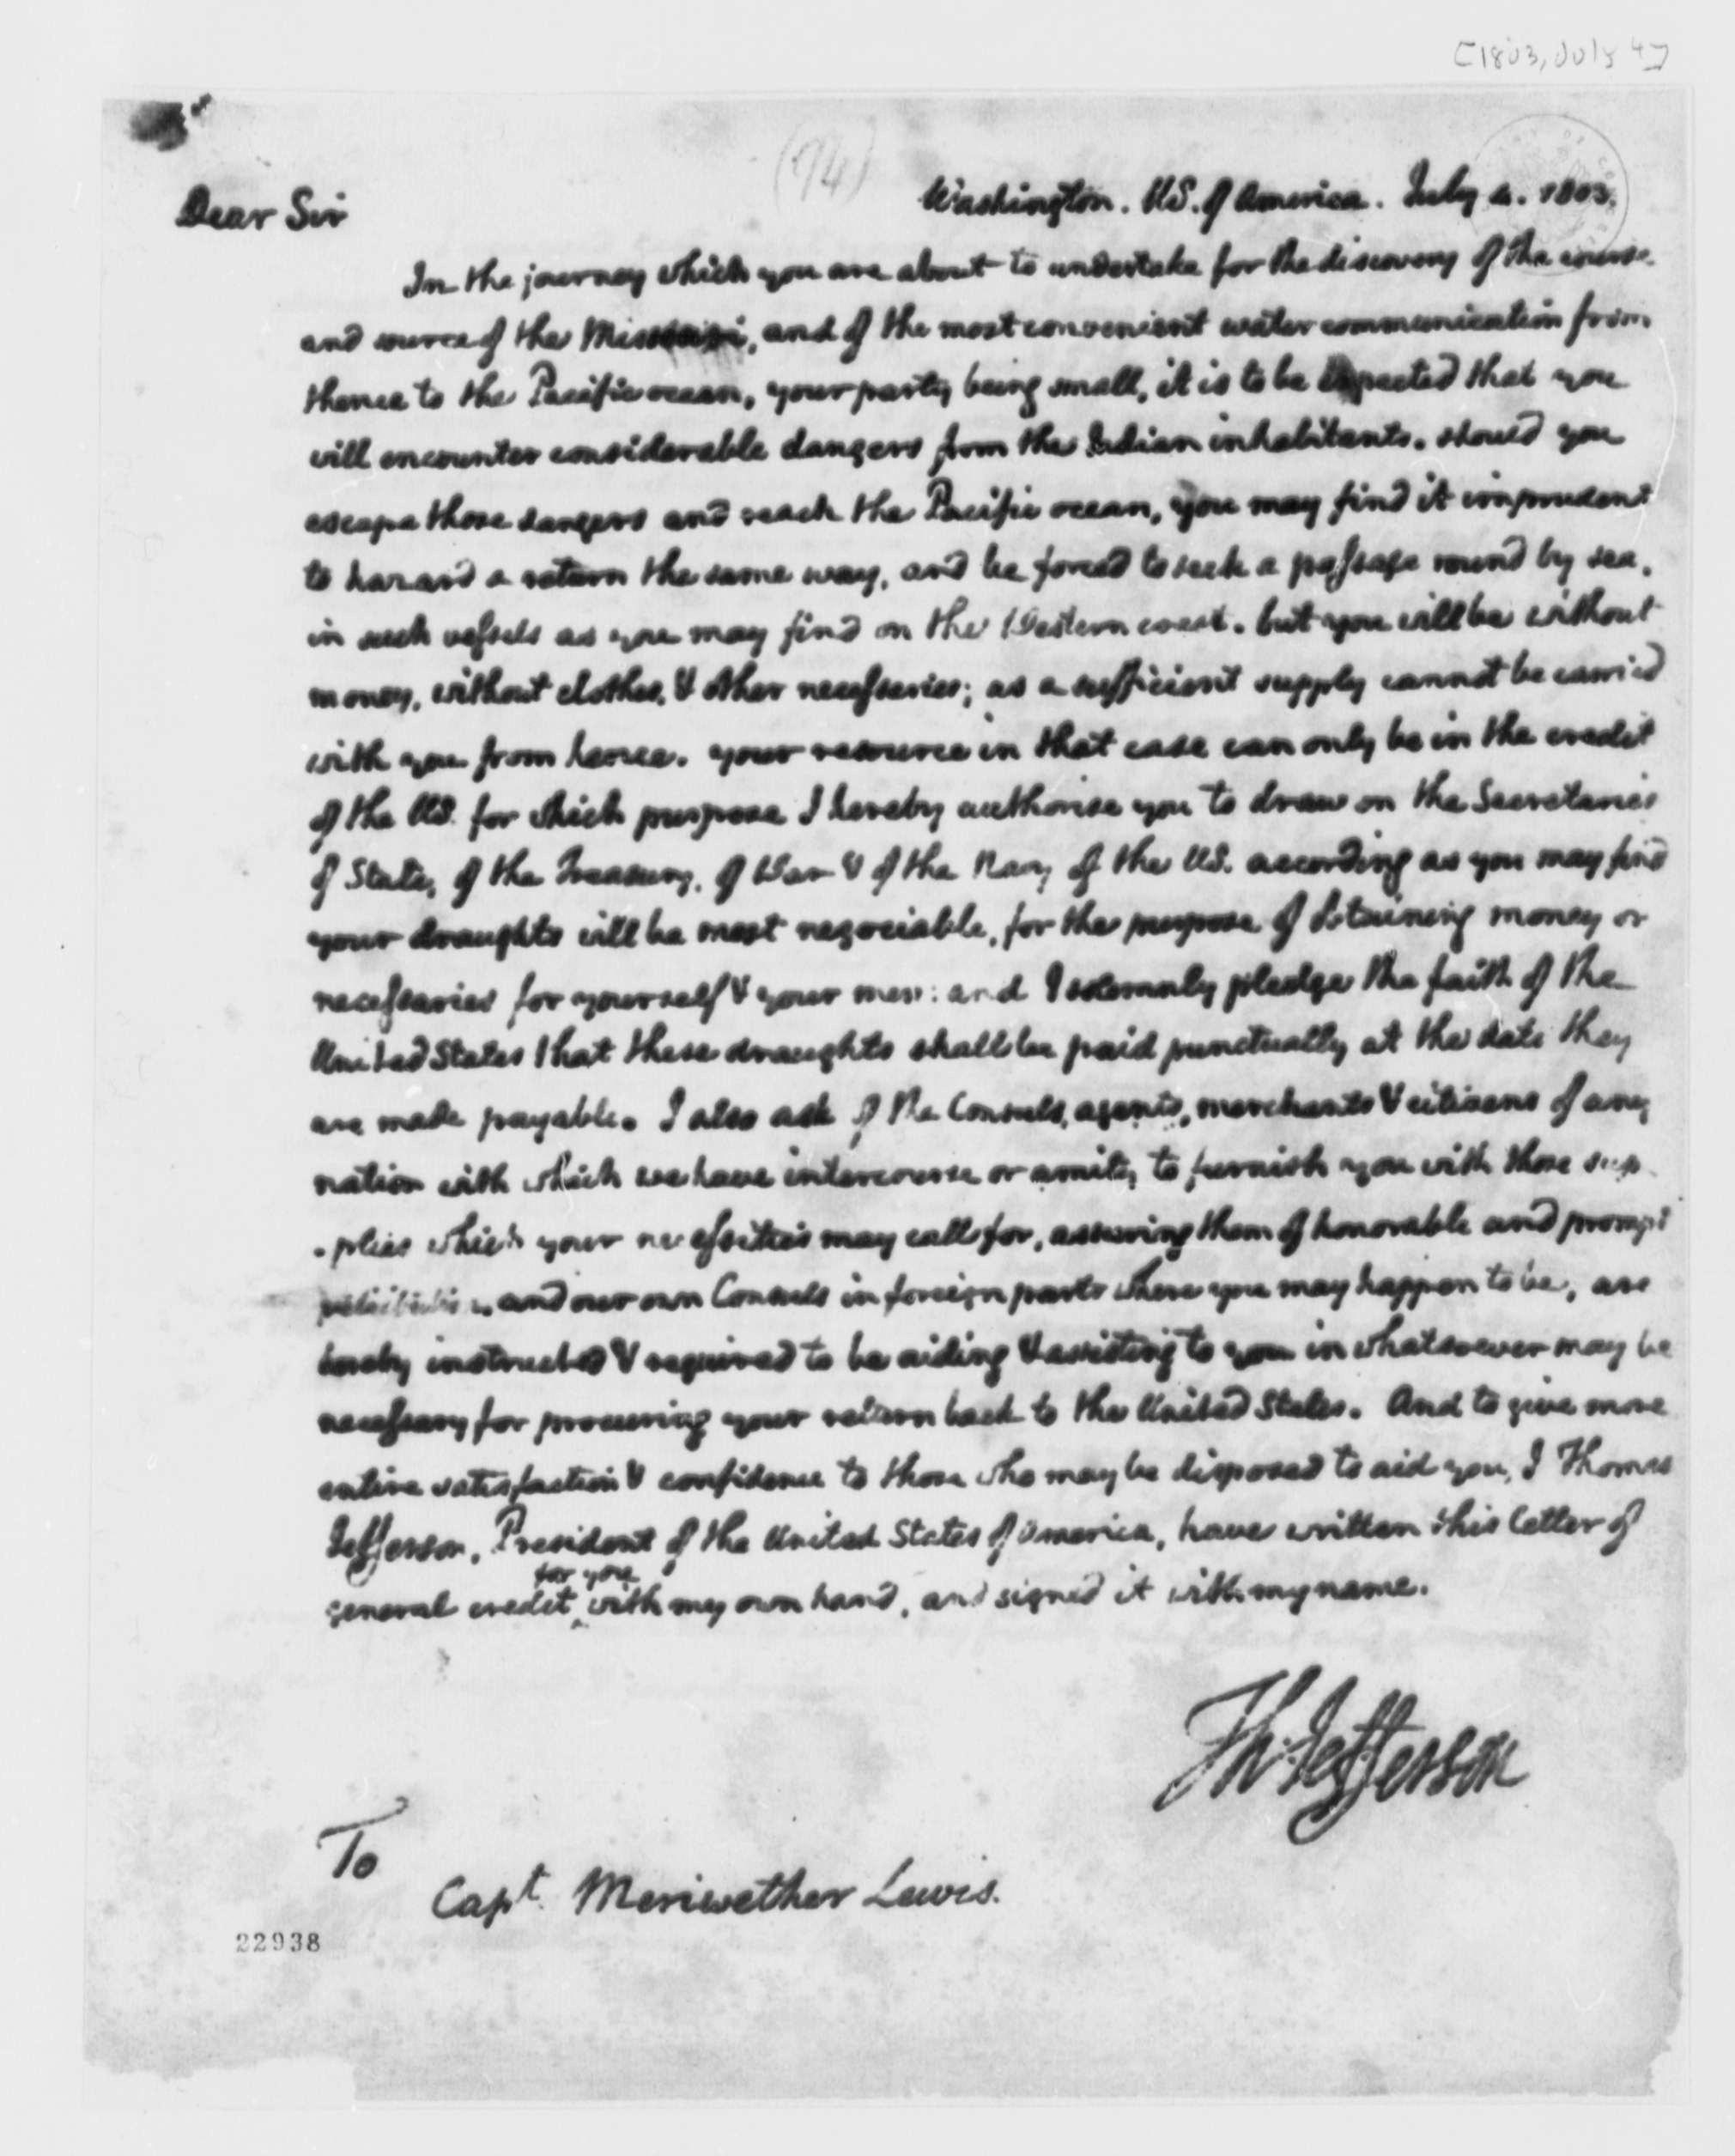 [1803, July 4]
(74)
Dear Sir
Washington. US. of America. July 4. 1803.
In the journey which you are about to undertake for the discovery of the course
and source of the, and of the most convenient water communication from
thence to the Pacific ocean, your party being small, it is to be expected that you
will encounter considerable dangers from the Indian inhabitants. should you
escape those dangers and reach the Pacific ocean, you may find it imprudent
to hazard a return the same way, and be forced to seek a passage round by sea,
in such vessels as you may find on the Western coast. but you will be without
money, without clothes, & other necessaries; as a sufficient supply cannot be carried
with you from hence. your resource in that case can only be in the credit
of the US. for which purpose I hereby authorise you to draw on the Secretaries
of State, of the Treasury, of War & of the Navy of the US. according as you may find
your draughts will be most negociable, for the purpose of obtaining money or
necessaries for yourself & your men: and I solemnly pledge the faith of the
United States that these draughts shall be paid punctually at the date they
are made payable. I also ask of the Consuls, agents, merchants & citizens of any
nation with which we have intercourse or amity to furnish you with those sup-
-plies which your necessities may call for, assuring them of honorable and prompt
and our own Consuls in foreign parts where you may happen to be, are
hereby instructed & required to be aiding & assisting to you in whatsoever may be
necessary for procuring your return back to the United States. And to give more
entire satisfaction & confidence to those who may be disposed to aid you, I Thomas
Jefferson, President of the United States of America, have written this letter of
for you
general credit with my own hand, and signed it with my name.
Th: Jefferson
To
Capt. Meriwether Lewis.
22938